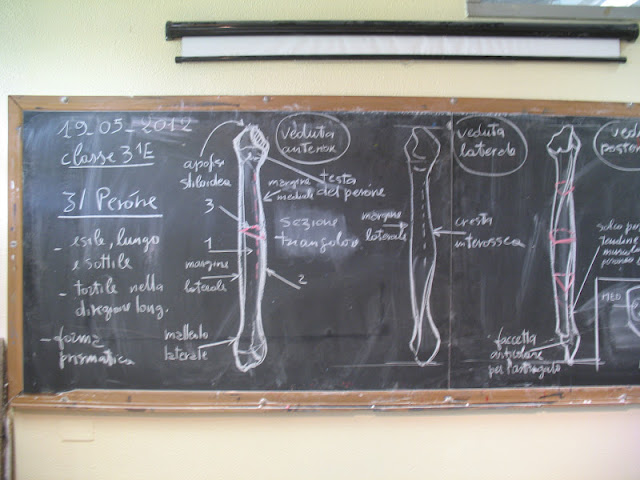 19-05-2012
classe 3ªE
3/ Peróne
- esile, lungo
e sottile
- tortile nella
direzione long.
- forma
prismatica
apofisi
stiloidea
3
1
margine
laterale
malleolo
laterale
veduta
anterior
testa
del perone
margine
mediale
sezione
triangolare
2
veduta
laterale
margine
laterale
cresta
interossea
ved
poster
solco per
tendine
muscolo
peroneo
MED.
faccetta
articolare
per l'astragalo